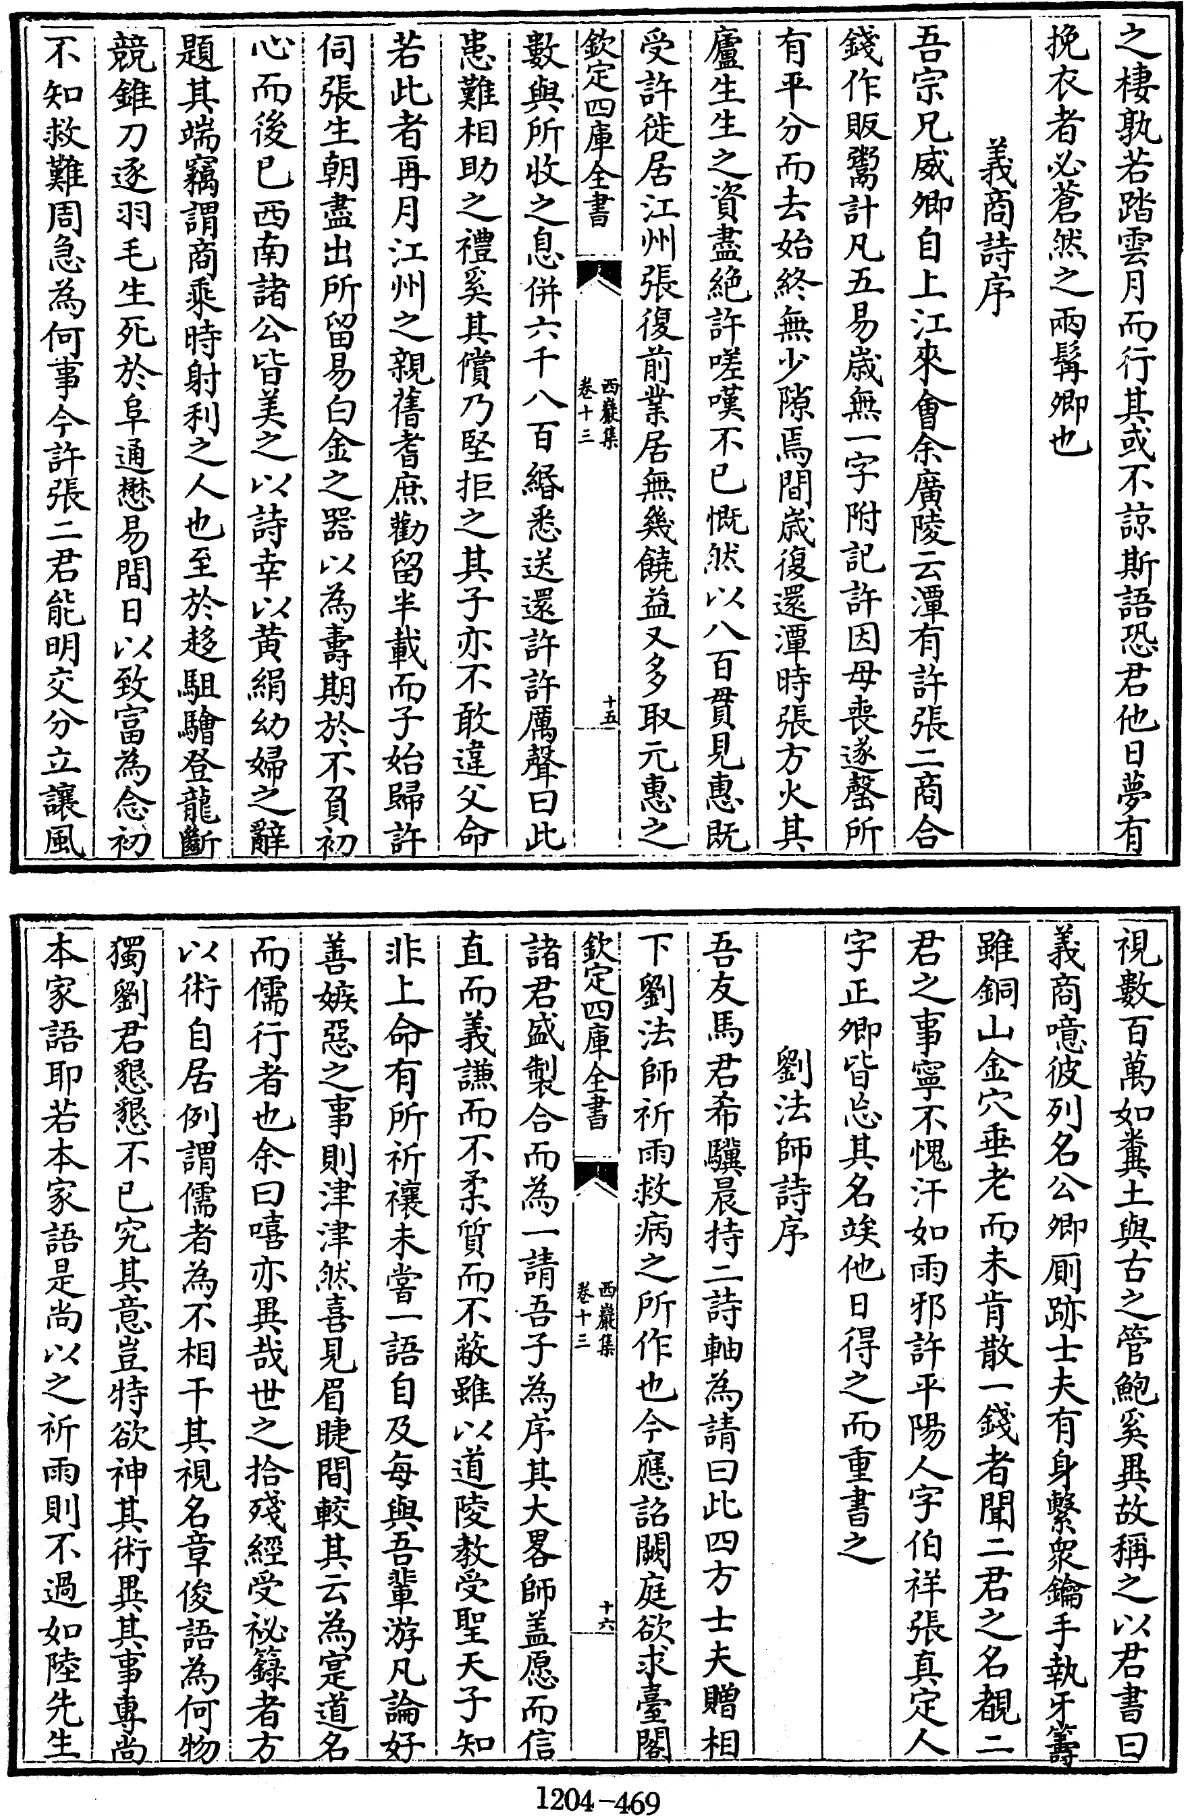 之棲孰若踏雲月而行其或不諒斯語恐君他日夢有
挽衣者必蒼然之兩髯卿也
義商詩序
吾宗兄威卿自上江來會余廣陵云潭有許張二商合
錢作販鬻計凡五易歲無一字附記許因母喪遂罄所
有平分而去始終無少隙焉間歲復還潭時張方火其
廬生生之資盡絶許嗟嘆不已慨然以八百貫見惠既
受許徙居江州張復前業居無幾饒益又多取元惠之
欽定四庫全書
西巖集
卷十三
十五
數與所收之息併六千八百緡悉送還許許厲聲曰此
患難相助之禮奚其償乃堅拒之其子亦不敢違父命
若此者再月江州之親舊耆庶勸留半載而子始歸許
伺張生朝盡出所留易白金之器以為壽期於不負初
心而後已西南諸公皆美之以詩幸以黄絹幼婦之辭
題其端竊謂商乘時射利之人也至於趍駔驓登龍斷
競錐刀逐羽毛生死於阜通懋易間日以致富為念初
不知救難周急為何事今許張二君能明交分立讓風
視數百萬如糞土與古之管鮑奚異故稱之以君書曰
義商噫彼列名公卿厠跡士夫有身繫衆鑰手執牙籌
雖銅山金穴垂老而未肯散一錢者聞二君之名覩二
君之事寧不愧汗如雨邪許平陽人字伯祥張真定人
字正卿皆忘其名竢他日得之而重書之
劉法師詩序
吾友馬君希驥晨持二詩軸為請曰此四方士夫贈相
下劉法師祈雨救病之所作也今應詔闕庭欲求臺閣
欽定四庫全書
西巖集
卷十三
十六
諸君盛製合而為一請吾子為序其大畧師盖愿而信
直而義謙而不柔質而不蔽雖以道陵教受聖天子知
非上命有所祈禳未嘗一語自及每與吾輩游凡論好
善嫉惡之事則津津然喜見眉睫間較其云為寔道名
而儒行者也余曰嘻亦異哉世之拾殘經受祕籙者方
以術自居例謂儒者為不相干其視名章俊語為何物
獨劉君懇懇不已究其意豈特欲神其術異其事專尚
本家語耶若本家語是尚以之祈雨則不過如陸先生
1204-469